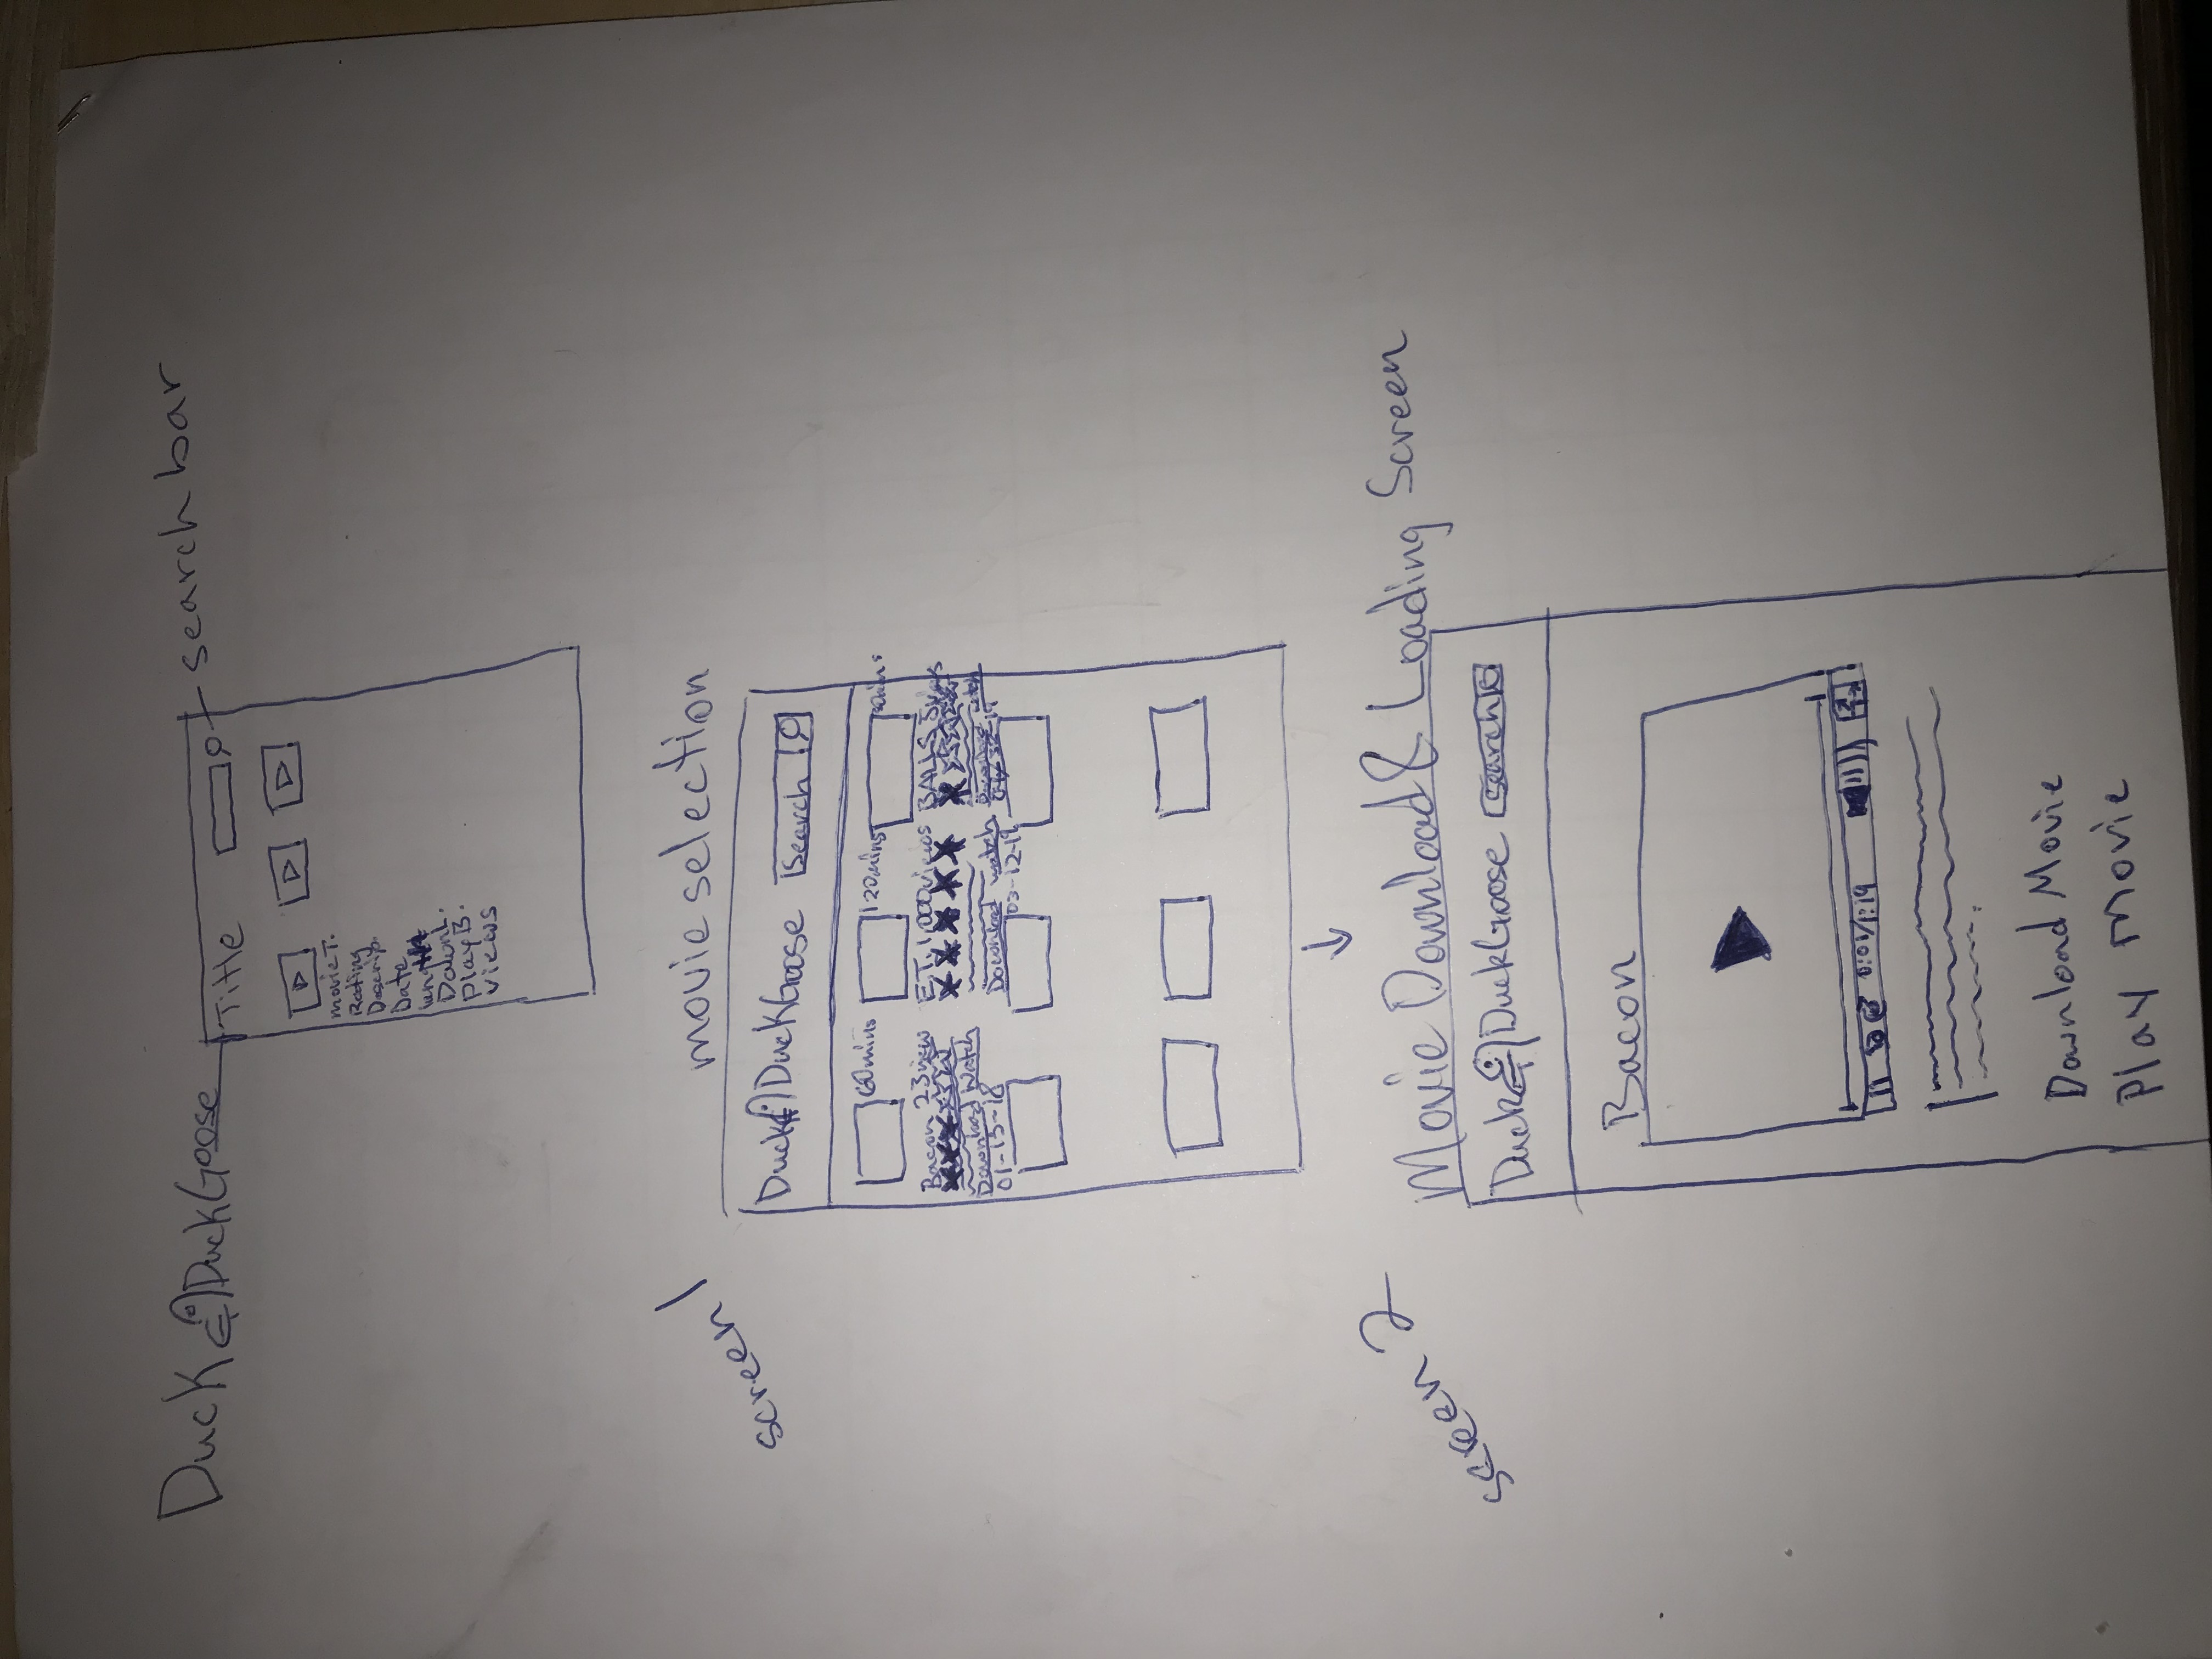 Duck DuckGoose
search bar
Title
movieT.
Rating
Descrip.
Date
Downl.
PlayB.
views
screen 1
movie selection
Duck DuckGoose Search
60mins 120mins
Bacon 23view E.T. 1,000views BALLS
Download Watch
Download watch
01-15-18
screen 2
Movie Download & Loading Screen
Duck DuckGoose search
Bacon
0:01/1:19
Download Movie
Play Movie